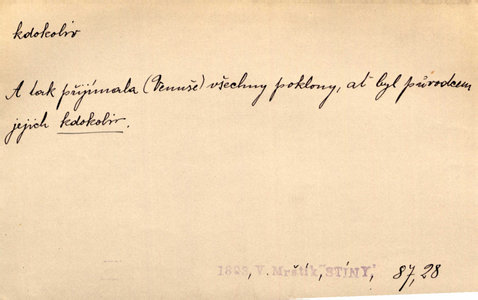 kdokoliv
A tak přijímala (Venuše) všechny poklony, ať byl původcem
jejich kdokoliv.
V. Mrštík, "STÍNY", 87, 28